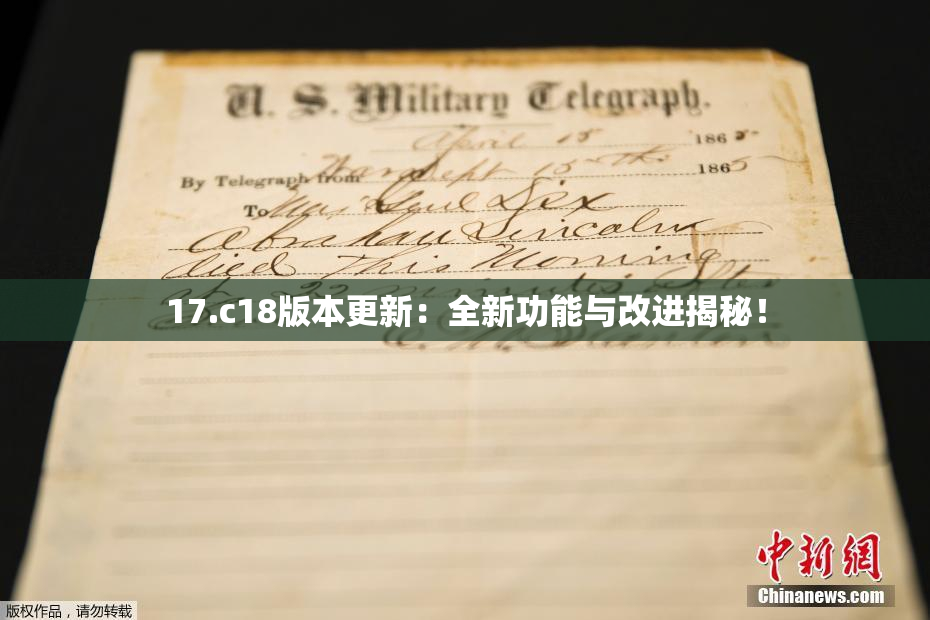 U. S. Military Telegraph.
April 15 1865
By Telegraph from War Dept 15th 1865
To Maj Genl Dix
Abraham Lincoln
died this Morning
at 22 minutes after
17.c18版本更新：全新功能与改进揭秘！
E. M. Stanton
中新網
Chinanews.com
版权作品，请勿转载